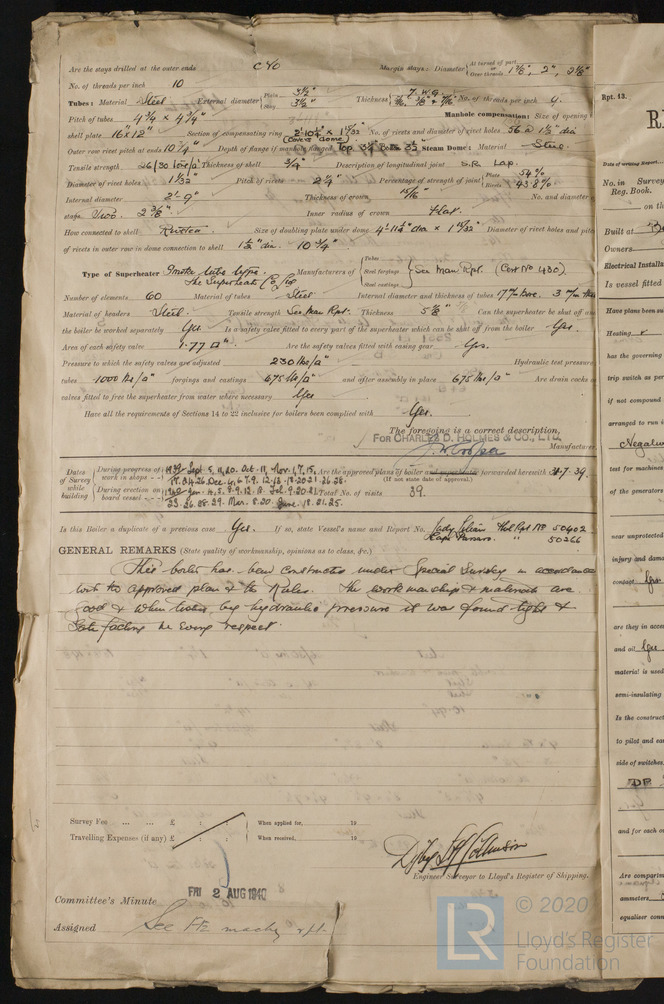 Are the stays drilled at the outer ends No Margin stays: Diameter { At turned off part, or Over threads 1 7/8", 2", 2 1/8"
No. of threads per inch 10
Tubes: Material Steel External diameter { Plain 3 1/2" Stay 3 1/2" Thickness { 7. W.G. 5/16, 3/8 & 7/16" No. of threads per inch 9.
Pitch of tubes 4 3/4 x 4 3/4" Manhole compensation: Size of opening
shell plate 16"x12" Section of compensating ring No. of rivets and diameter of rivet holes 36 @ 1 1/2" dia
Outer row rivet pitch at ends 10 3/4" Depth of flange if manhole flanged Top 3 1/2" Bott 3 1/2" Steam Dome: Material Steel.
Tensile strength 26/30 tons/□" Thickness of shell 3/4" Description of longitudinal joint S.R. Lap.
Diameter of rivet holes 1 1/32" Pitch of rivets 2 1/4" Percentage of strength of joint { Plate 54% Rivets 43.8%
Internal diameter 2'-9" Thickness of crown 15/16" No. and diameter
stays Two. 2 3/8" Inner radius of crown Flat.
How connected to shell Riveted Size of doubling plate under dome 4'-11 1/2" dia x 1 11/32" Diameter of rivet holes and pitch
of rivets in outer row in dome connection to shell 1 1/2" dia. 10 3/4"
Type of Superheater Smoke tube type. Manufacturers of { Tubes Steel forgings Steel castings } See Man Rpt. (Cert No 430).
The Superheater Co Ltd
Number of elements 60 Material of tubes Steel Internal diameter and thickness of tubes 17 m/m bore. 3 m/m thick
Material of headers Steel. Tensile strength See Man Rpt. Thickness 5/8" Can the superheater be shut off and
the boiler be worked separately Yes. Is a safety valve fitted to every part of the superheater which can be shut off from the boiler Yes.
Area of each safety valve 1.77 □". Are the safety valves fitted with easing gear Yes.
Pressure to which the safety valves are adjusted 230 lbs/□" Hydraulic test pressure
tubes 1000 lbs/□" forgings and castings 675 lbs/□" and after assembly in place 675 lbs/□" Are drain cocks or
valves fitted to free the superheater from water where necessary Yes
Have all the requirements of Sections 14 to 22 inclusive for boilers been complied with Yes.
The foregoing is a correct description,
FOR CHARLES D. HOLMES & CO., LTD.
Manufacturer
Dates of Survey while building { During progress of work in shops - - 1939 Sept. 5, 11, 20. Oct. 11, Nov. 1, 7, 15. Are the approved plans of boiler and superheater forwarded herewith 31.7.39.
(If not state date of approval.)
During erection on board vessel - - - Total No. of visits 39.
Is this Boiler a duplicate of a previous case Yes. If so, state Vessel's name and Report No. Lady Lilian Hul Rpt No 50402
" 50266
GENERAL REMARKS (State quality of workmanship, opinions as to class, &c.)
This boiler has been constructed under Special Survey in accordance
with the approved plan & the Rules. The workmanship & materials are
good & when tested by hydraulic pressure it was found tight &
satisfactory in every respect.
Survey Fee ... ... £ : : When applied for, 19
Travelling Expenses (if any) £ : : When received, 19
Engineer Surveyor to Lloyd's Register of Shipping.
Committee's Minute FRI 2 AUG 1940
Assigned See F.E. machy rpt.
LR © 2020
Lloyd's Register
Foundation
Rpt. 13.
Date of writing Report
No. in Survey
Reg. Book.
on the
Built at
Owners
Electrical Installa
Is vessel fitted
Have plans been su
Heating
has the governing
trip switch as per
if not compound
arranged to run i
Negative
test for machines
of the generators
near unprotected
injury and dama
contact Yes
are they in acces
and oil Yes
material is used
semi-insulating
Is the construct
to pilot and ea
side of switches,
DP
and for each o
Are compartm
ammeters,
equaliser conne